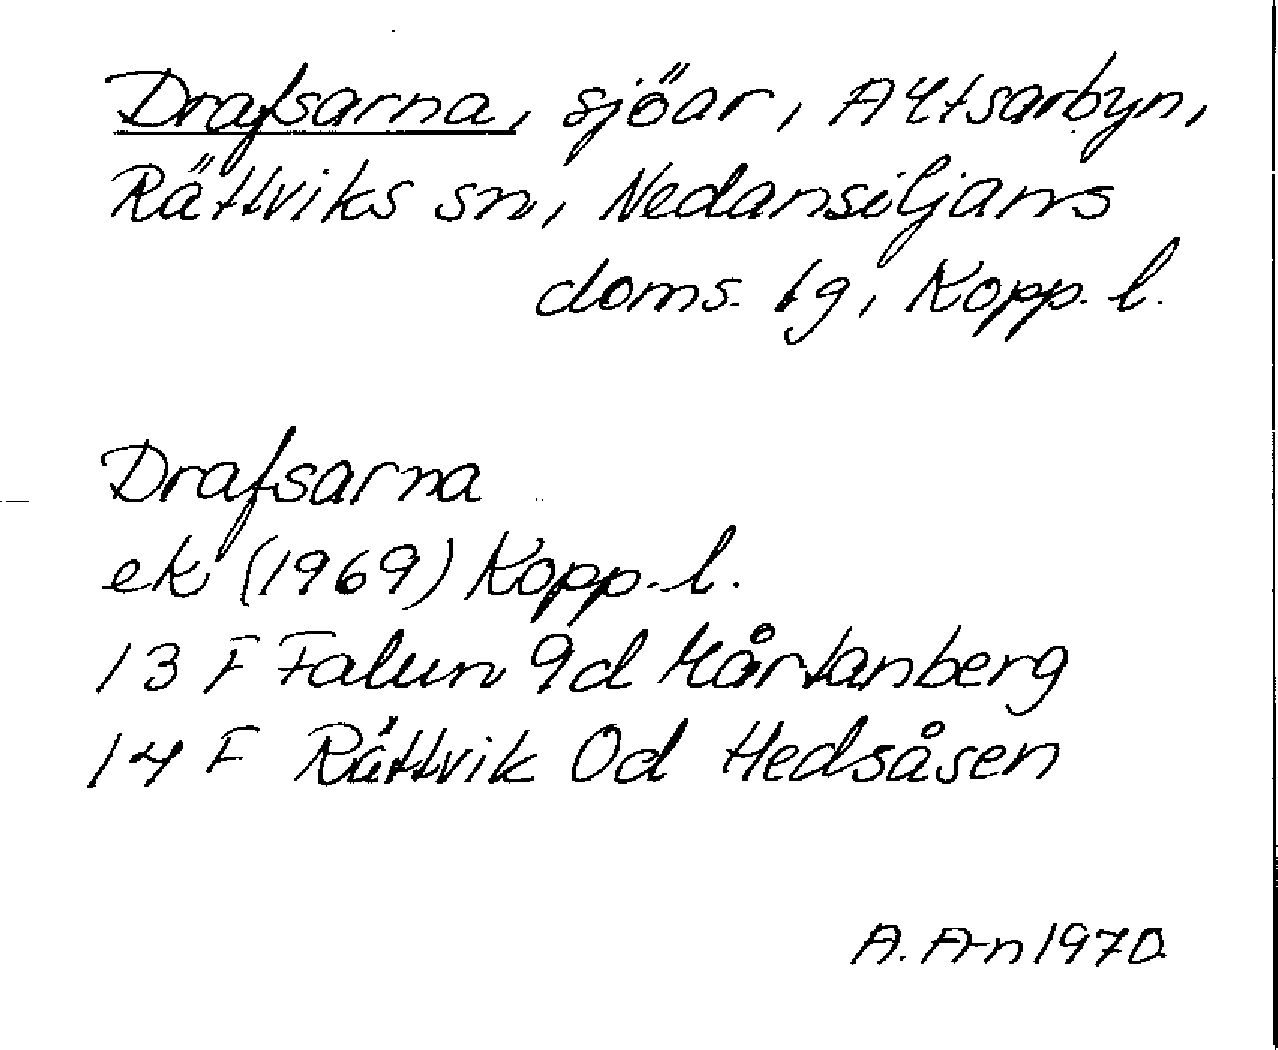 Drafsarna, sjöar, Altsarbyn,
Rättviks sn, Nedansiljans
doms. lg, Kopp. l.
Drafsarna
ek (1969) Kopp. l.
13 F Falun 9d Mårtanberg
14 F Rättvik 0d Hedsåsen
A. Arn 1970